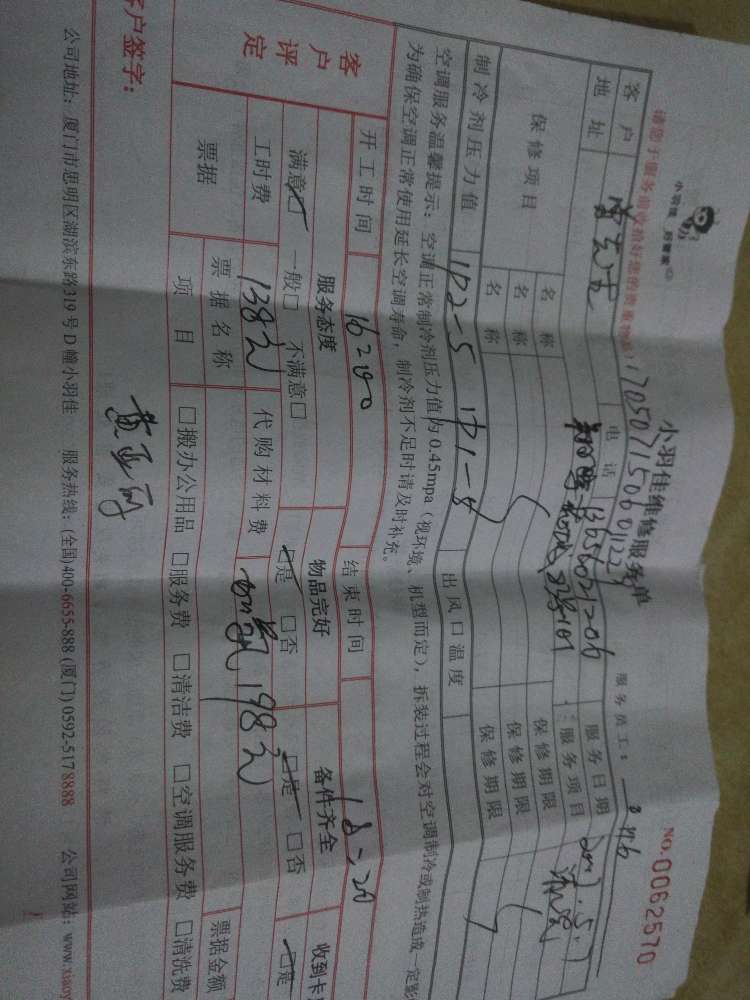 小羽佳 好管家
请您于服务前收拾好您的贵重物品！
小羽佳维修服务单
NO.0062570
服务员工：
客户
电话
服务日期
地址
服务项目
保修项目
名称
保修期限
名称
保修期限
名称
保修期限
制冷剂压力值
出风口温度
空调服务温馨提示：空调正常制冷剂压力值为0.45mpa（视环境、机型而定），拆装过程会对空调制冷或制热造成一定影
为确保空调正常使用延长空调寿命，制冷剂不足时请及时补充。
开工时间
结束时间
客户评定
服务态度
物品完好
备件齐全
收到卡
满意□ 一般□ 不满意□
□是 □否
□是 □否
□是
工时费 138元
代购材料费 198元
票据
票据名称
票据金额
项目
□搬办公用品 □服务费 □清洁费 □空调服务费 □清洗费
客户签字：
公司地址：厦门市思明区湖滨东路319号D幢小羽佳 服务热线：(全国)400-6655-888 (厦门) 0592-5178888 公司网站：www.xiaoy